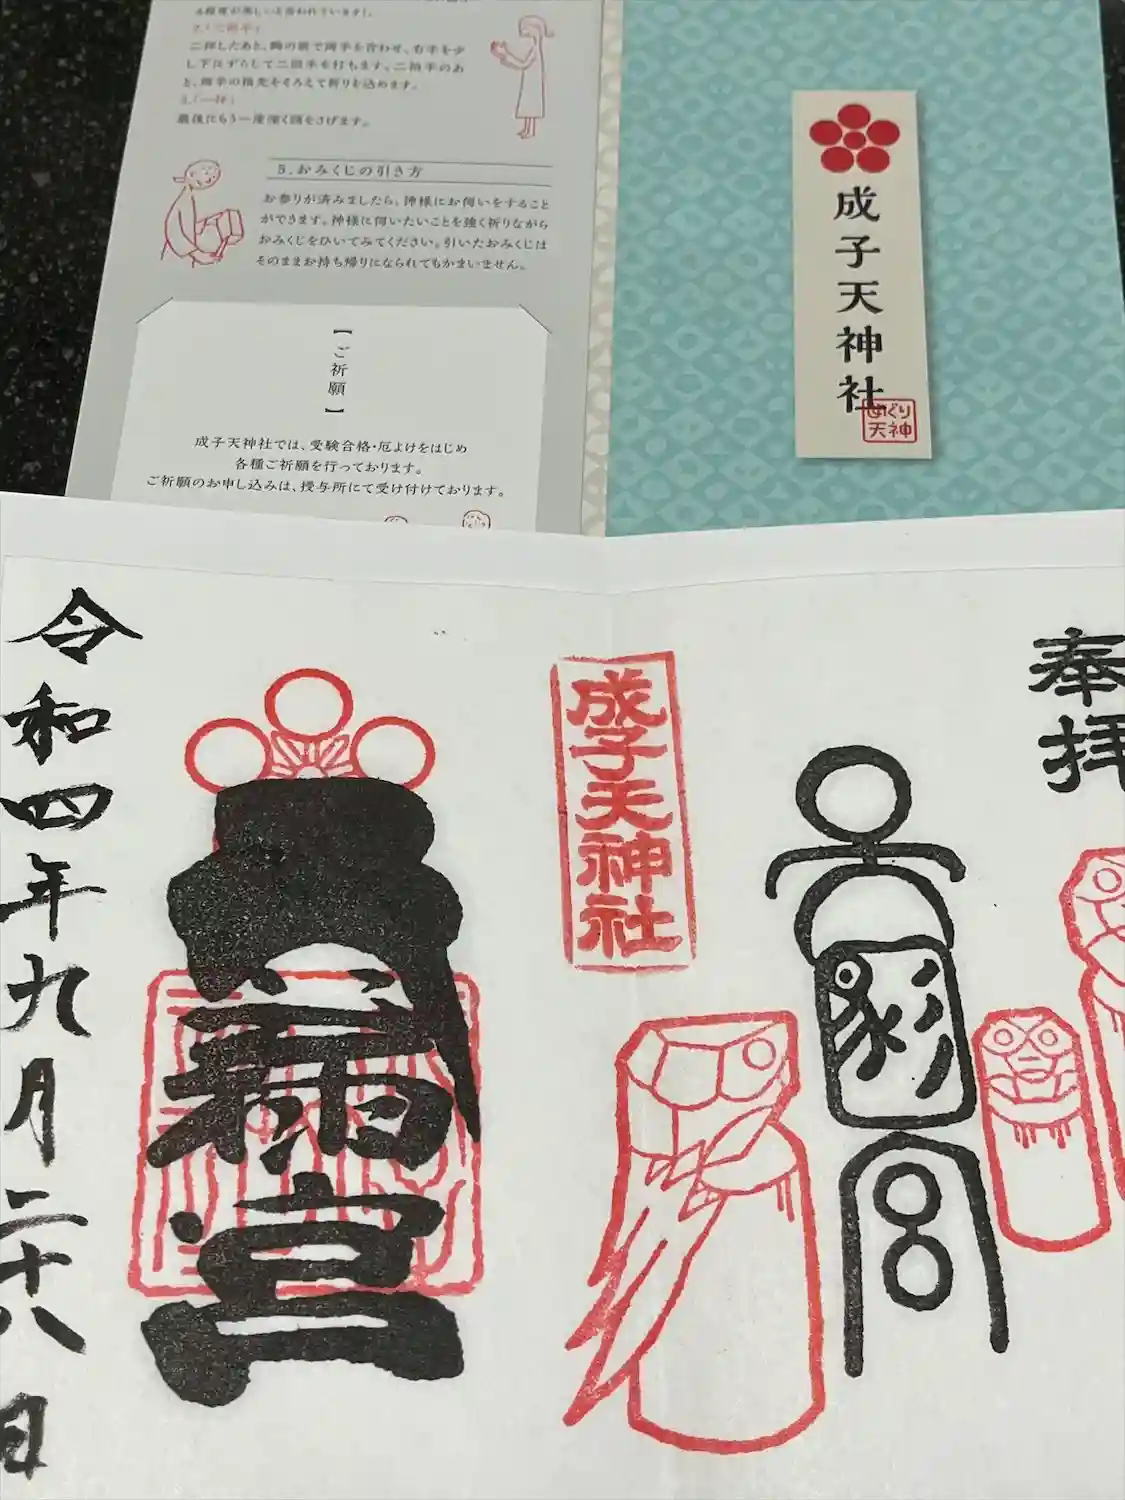 二拝したあと、胸の前で両手を合わせ、右手を少
し下にずらして二拍手を打ちます。二拍手のあ
と、両手の指先をそろえて祈りを込めます。
3.「一拝」
最後にもう一度深く頭をさげます。
5.おみくじの引き方
お参りが済みましたら、神様にお伺いをすること
ができます。神様に伺いたいことを強く祈りながら
おみくじをひいてみてください。引いたおみくじは
そのままお持ち帰りになられてもかまいません。
【ご祈願】
成子天神社では、受験合格・厄よけをはじめ
各種ご祈願を行っております。
ご祈願のお申し込みは、授与所にて受け付けております。
成子天神社
めぐり
天神
奉拝
成子天神社
令和四年九月二十八日